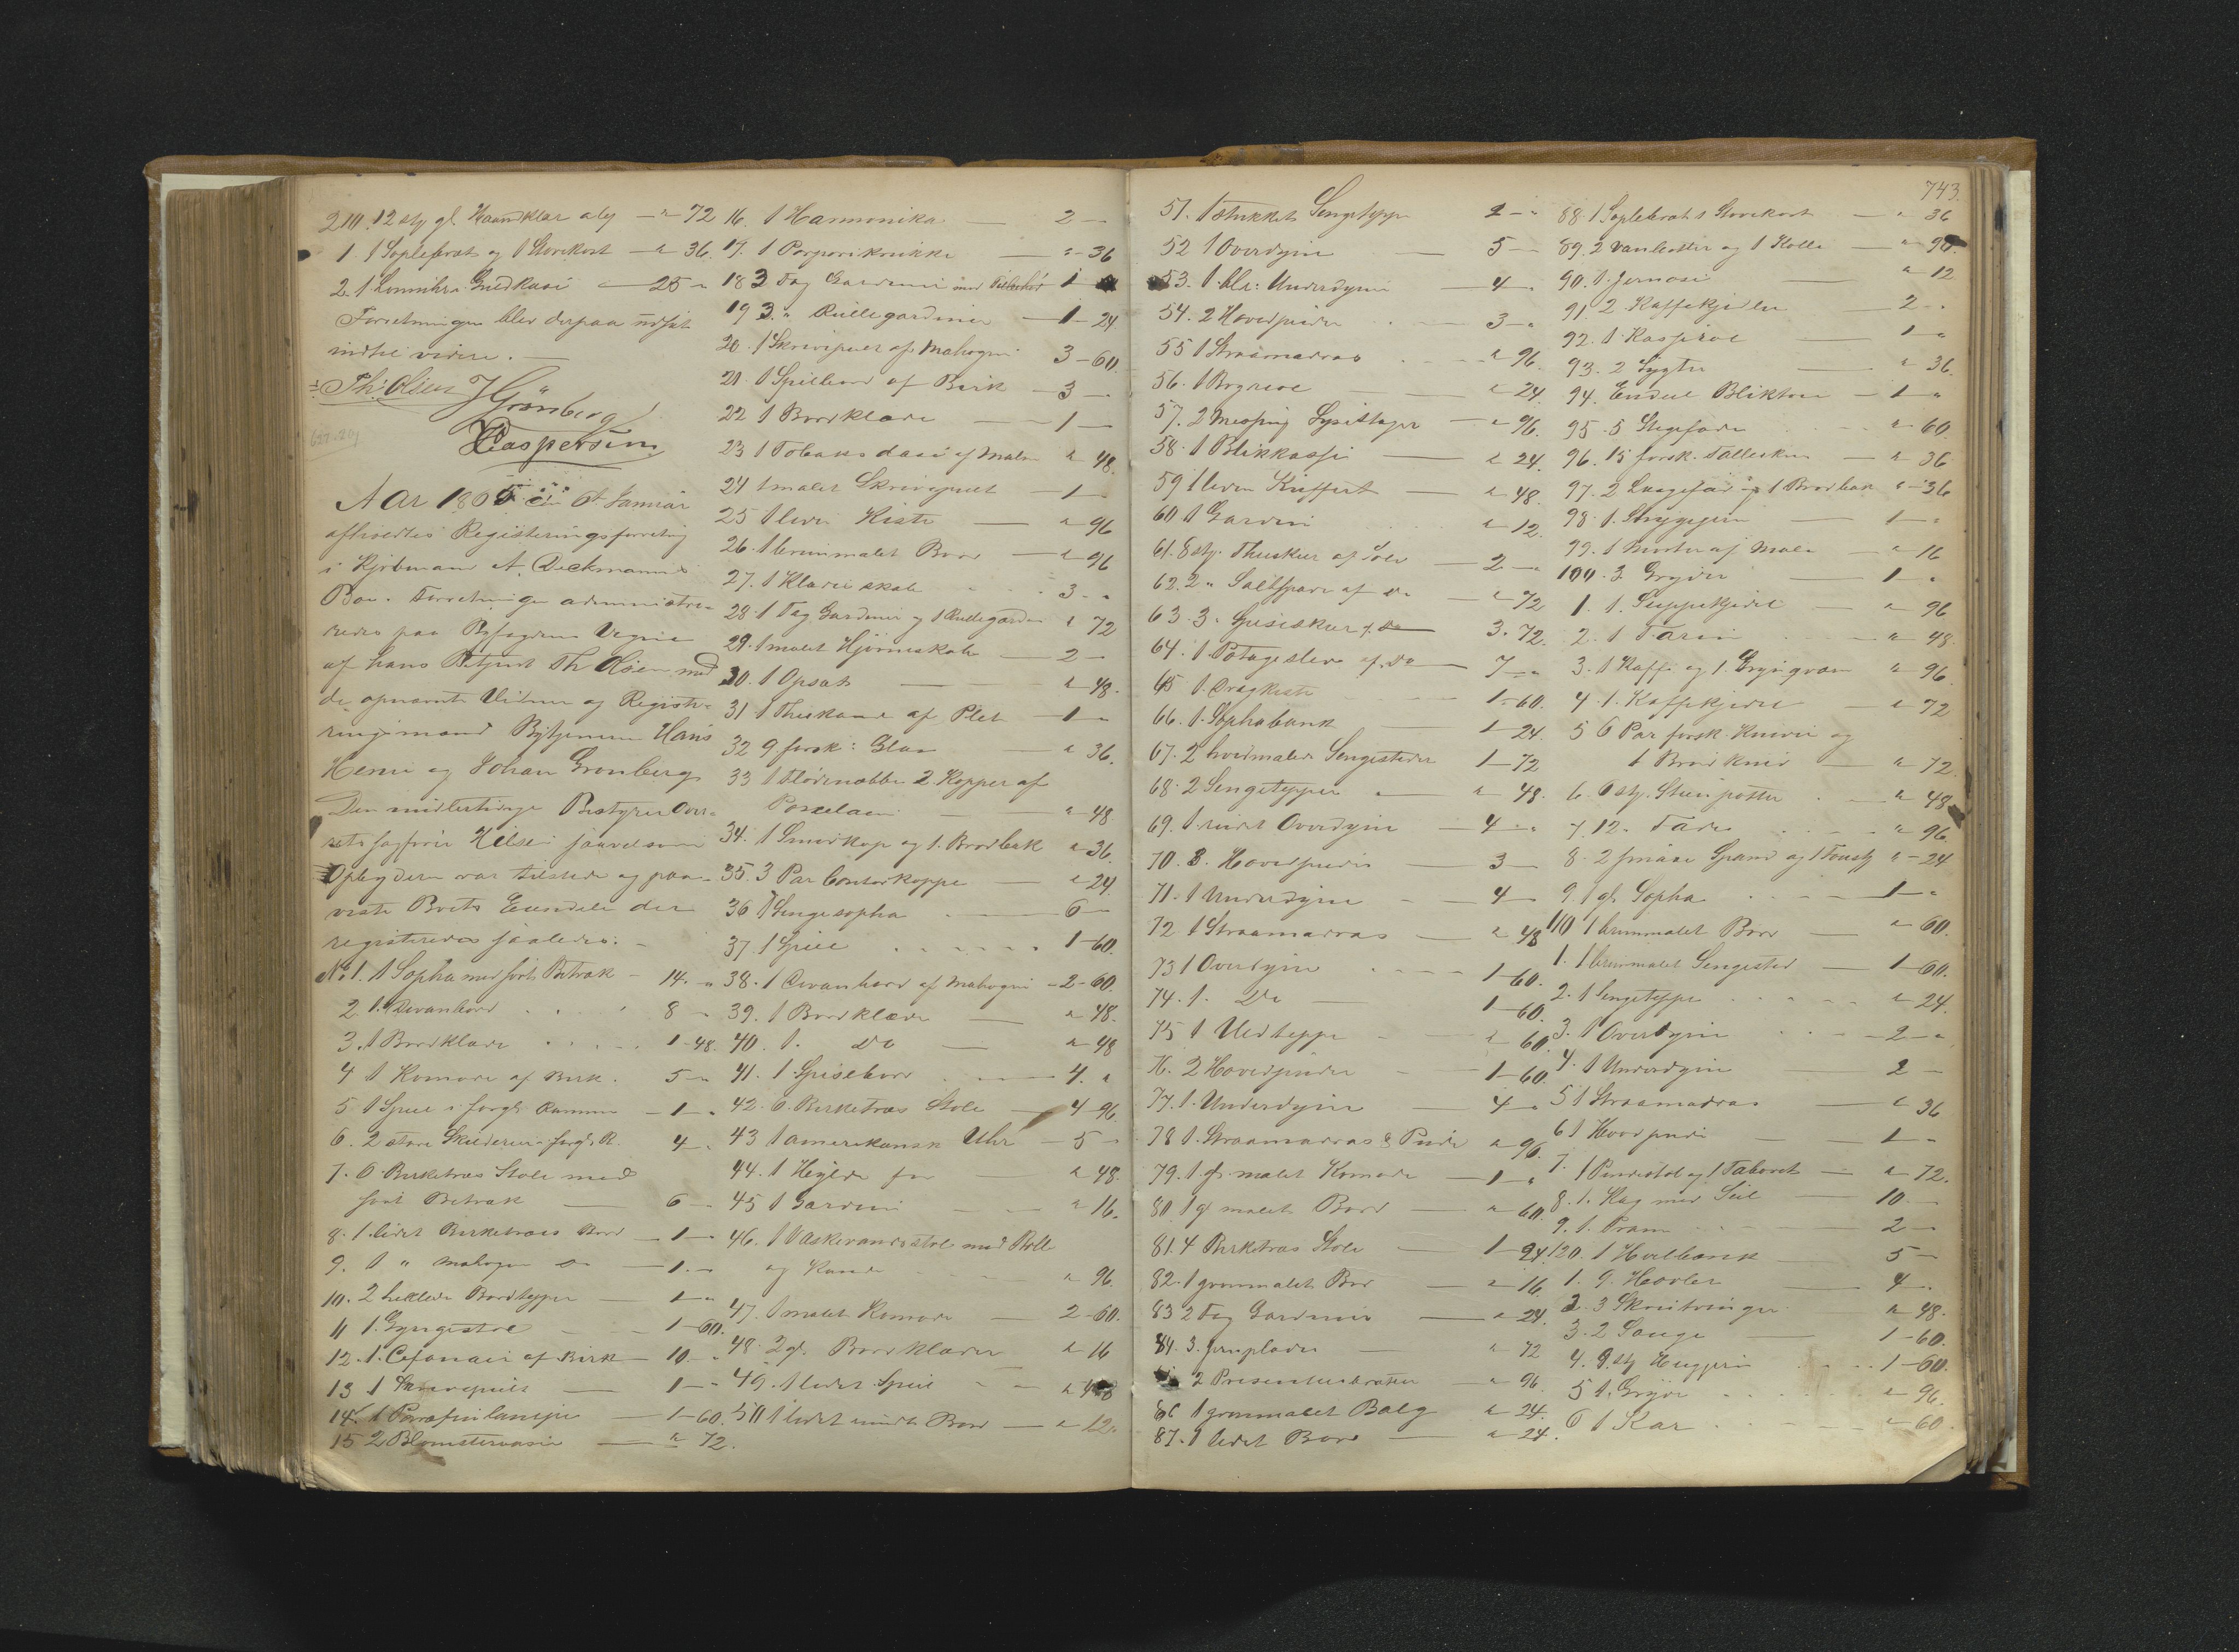 210. 12 stk gl. Haandklær aley — " 72
1. 1 Soplebræt og 1 Stovekost — " 36.
2. 1 Guldkasse — 25 "
Forretningen blev derpaa udsat
indtil videre. —
Th: Olsen J Grønberg
Caspersen
Aar 1865 den 6t Januar
afholdtes Registreringsforretning
i Kjøbmand A. Dickmanns
Bo. Forretningen administre-
redes paa Byfogdens Vegne
af hans Betjent Th Olsen med
de opnævnte Vidner og Registe-
ringsmænd Bytjenerne Hans
Henne og Johan Grønberg
Den midlertidige Bestyrer Over-
retssagfører Nilsen saavelsom
Opbyderen var tilstede og paa-
viste Boets Eiendele der
registreredes saaledes: —
No 1. 1 Sopha med sort Betræk — 14. "
2. 1. Divanbord . . . 8 "
3. 1 Bordklæde . . . . 1-48.
4 1 Komode af Birk . 5 - "
5 1 Speil i forgl. Ramme — 1 - "
6. 2 store Skilderier i forgl. R. 4 - "
7. 6 Birketræs Stole med
sort Betræk — 6 —
8. 1 lidet Birketræes Bord — 1 — "
9. 1 " Mahogni Do — 1. - "
10. 2 heklede Bordtepper — 1 - "
11 1. Gyngestol — 1-60.
12. 1. Cefonaie af Birk — 10 - "
13 1 Skrivepult — 1 - "
14. 1 Parafinlampe — 1-60.
15 2 Blomstervaser — " 72.
16. 1 Harmonika — 2 —
17. 1 — " - 36
18 3 Fag Gardiner med Tilbehør 1
19 3. " Rullegardiner — 1 - 24
20. 1 Skrivepult af Mahogni 3 - 60.
21. 1 Spillebord af Birk — 3 —
22 1 Bordklæde — 1 —
23 1 Tobaksdaase af Malm " 48.
24 1 malet Skrivepult — 1 —
25 1 liden Kiste — " 96
26. 1 brunmalet Bord — " 96
27. 1 Klædeskab . . 3. - "
28. 1 Fag Gardiner og 1 Rullegardin " 72
29. 1 malet Hjørneskab — 2 —
30. 1 Opsats — " 48.
31 1 Theekande af Plet — 1 - "
32 9 forsk: Glas — " 36.
33 1 Flødenæbbe 2 Kopper af
Porcelain — " 48
34. 1 Smørkop og 1. Brødbæk " 36.
35. 3 Par Contorkopper — " 24
36 1 Sengesopha — 6 —
37. 1 Speil . . . . . . 1-60.
38. 1 Divanbord af Mahogni - 2-60.
39. 1 Bordklæde — " 48.
40. 1. Do — " 48
41. 1 Spisebord — 4. "
42. 6 Birketræs Stole — 4-96
43 1 amerikansk Uhr — 5 -
44. 1 — " 48.
45 1 Gardin — " 16.
46. 1 Vaskevandsstol med Bolle
og Kande — " 96
47. 1 malet Komode — 2-60.
48. 2 gl. Bordklæder " 16
49. 1 lidet Speil — " 48
50 1 lidet rundt Bord — " 12.
743.
51. 1 stukket Sengeteppe 2 - "
52 1 Overdyne — 5 —
53. 1 bl: Underdyne — 4 - "
54. 2 Hovedpuder — 3 - "
55 1 Straamadras — " 96.
56. 1 — " 24.
57. 2 Messing Lysestager — " 96.
58. 1 Blikkasse — " 24.
59 1 liden Kuffert — " 48.
60 1 Gardin . . . " 12.
61. 8 stk. Theskeer af Sølv — 2 - "
62. 2 " Saltspader af Do — " 72
63. 3 " Spiseskeer af Do 3. 72.
64. 1 Potageslev af Do — 7 - "
65 1. Dragkiste 1-60.
66. 1. Sophabænk — 1-24.
67. 2 hvidmalede Sengesteder 1-72
68. 2 Sengetepper — " 48.
69. 1 Overdyne — 4 - "
70. 3. Hovedpuder — 3 —
71. 1 Underdyne — 4 —
72 1 Straamadras — " 48
73 1 Overdyne — 1-60.
74. 1. Do — 1-60.
75 1 Uldteppe — " 60
76. 2 Hovedpuder — 1-60
77. 1. Underdyne — 4 - "
78 1. Straamadras & Pude " 96.
79. 1 gl. malet Komode — 1 - "
80 1 gl malet Bord — " 60.
81. 4 Birketræs Stole — 1-24.
82. 1 grønmalet Bord — " 16
83 2 Fag Gardiner — " 24.
84. 3. Jernplader — " 72
2 Presenteerbrætter — " 96.
86 1 grønmalet Balg " 24.
87. 1 lidet Bord — " 24.
88. 1 Soplebræt 1 Stovekost — " 36
89. 2 Vandbøtter og 1 Kolle — " 90.
90. 1. Jernose — " 12
91. 2 Kaffekjedler — 2 - "
92. 1. Kasserol — 1 - "
93. 2 Lygter — " 36.
94. Endeel Bliktøi — 1 - "
95. 5 Stegefade . . . " 60.
96. 15 forsk. Tallerkener — " 36
97. 2 og 1 Brødbæk " - 36
98. 1. Strygejern — 1 - "
99. 1 Morter af Malm — " 16
100. 3 Gryder — 1 - "
1. 1. Suppekjedel — " 96
2. 1 Tarin — " 48
3. 1 Kaffe og 1. Grynqværn " 96
4. 1. Kaffekjedel — " 72
5 6 Par forsk. Knive og
1 Brødkniv — " 72
6. 6 stk. Steenpotter — " 48
7. 12. Fade . . . " 96
8. 2 smaae Spand og 1 " - 24
9. 1 gl. Sopha . . . . 1 - "
110 1 brunmalet Bord — " 60.
1. 1 brunmalet Sengested — 1-60.
2. 1 Sengeteppe . . . " 24.
3. 1 Overdyne . . — 2 - "
4. 1 Underdyne — 2 -
5 1 Straamadras — " 36
6 1 Hovedpude — 1 -
7. 1 og 1 Taburet — " 72.
8. 1. Kag med Seil — 10 —
9. 1. Pram — 2 —
120. 1 Høvlbænk — 5 —
1. 9. Høvler — 4 -
2. 3 Skruetvinger " 48.
3. 2 Sauge — 1-60.
4. 9. stk Huggjern . . . 1-60.
5 1. Gryde . . . . " 96.
6 1 Kar . . . " 60.